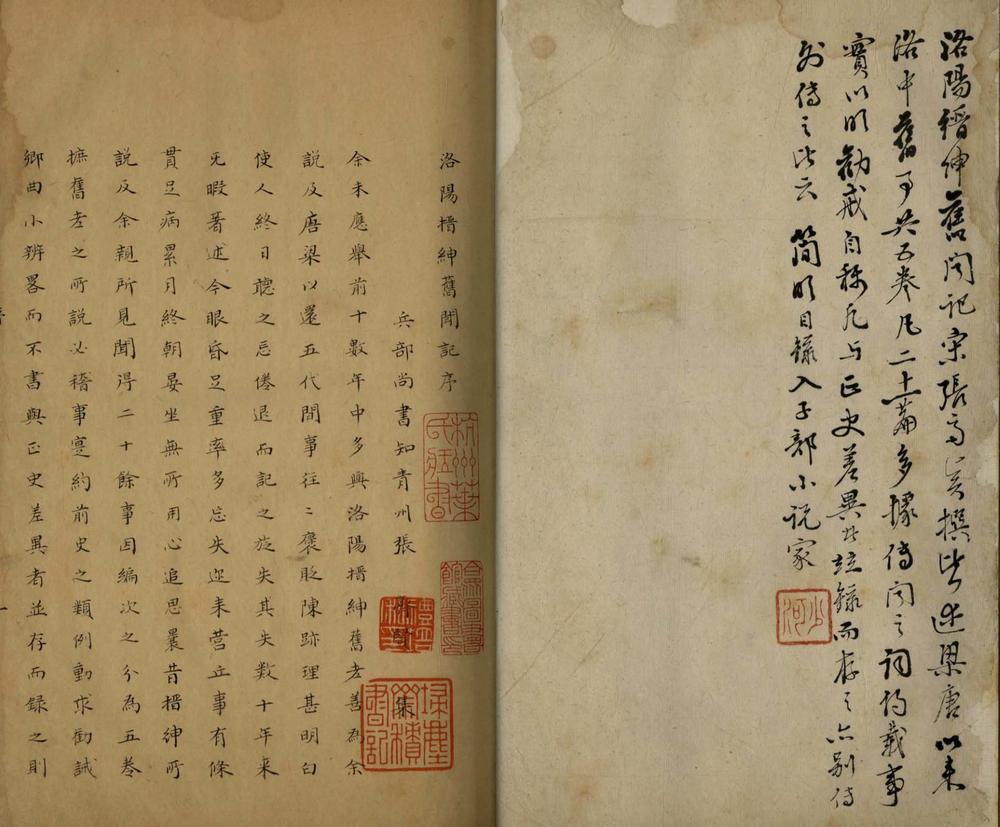 洛陽搢伸舊闻记宋張齊賢撰皆述梁唐以来
洛中舊事共五卷凡二十一篇多據傳闻之詞約載事
實以明勸戒自稱凡与正史差異者竝録而存之亦别传
外傳之比云 简明目録入子部小说家
沙河
洛陽搢紳舊聞記序
兵部尚書知青州張齊賢集
余未應舉前十數年中多與洛陽搢紳舊老善為余
說及唐梁以還五代間事往〻褒貶陳跡理甚明白
使人終日聽之忘倦退而記之旋失其失數十年来
旡暇著述今眼昏足重率多忘失迩来营丘事有條
貫足病累月終朝晏坐無所用心追思曩昔搢紳所
說及余親所見聞得二十餘事因編次之分為五卷
摭舊老之所說必稽事寔約前史之類例動求勸誡
鄉曲小辨畧而不書與正史差異者並存而録之則
杭州葉氏藏書
合眾圖書館藏書印
掃塵齋積書記
禮培私印